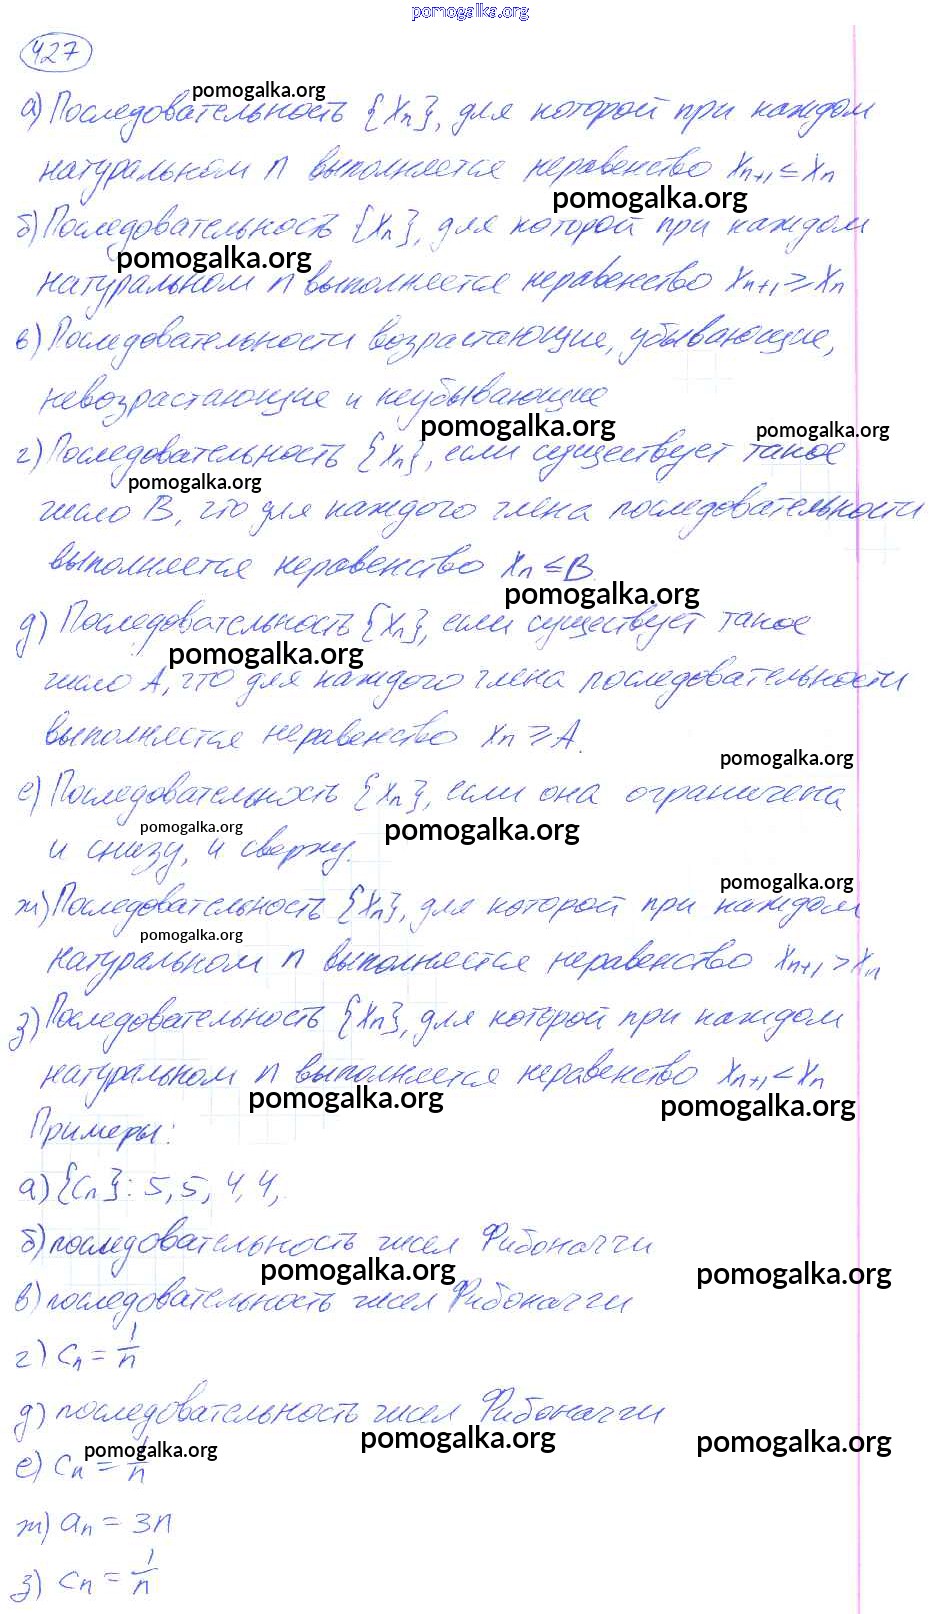 pomogalka.org
427
pomogalka.org
а) Последовательность {xₙ}, для которой при каждом
натуральном n выполняется неравенство xₙ₊₁ ≤ xₙ
pomogalka.org
б) Последовательность {xₙ}, для которой при каждом
pomogalka.org
натуральном n выполняется неравенство xₙ₊₁ ≥ xₙ
в) Последовательности возрастающие, убывающие,
невозрастающие и неубывающие
pomogalka.org pomogalka.org
г) Последовательность {xₙ}, если существует такое
pomogalka.org
число B, что для каждого члена последовательности
выполняется неравенство xₙ ≤ B.
pomogalka.org
д) Последовательность {xₙ}, если существует такое
pomogalka.org
число A, что для каждого члена последовательности
выполняется неравенство xₙ ≥ A.
pomogalka.org
е) Последовательность {xₙ}, если она ограничена
pomogalka.org pomogalka.org
и снизу, и сверху.
pomogalka.org
ж) Последовательность {xₙ}, для которой при каждом
pomogalka.org
натуральном n выполняется неравенство xₙ₊₁ > xₙ
з) Последовательность {xₙ}, для которой при каждом
натуральном n выполняется неравенство xₙ₊₁ < xₙ
pomogalka.org pomogalka.org
Примеры:
а) {cₙ}: 5, 5, 4, 4,
б) последовательность чисел Фибоначчи
pomogalka.org pomogalka.org
в) последовательность чисел Фибоначчи
г) cₙ = 1/n
д) последовательность чисел Фибоначчи
pomogalka.org pomogalka.org pomogalka.org
е) cₙ = 1/n
ж) aₙ = 3n
з) cₙ = 1/n